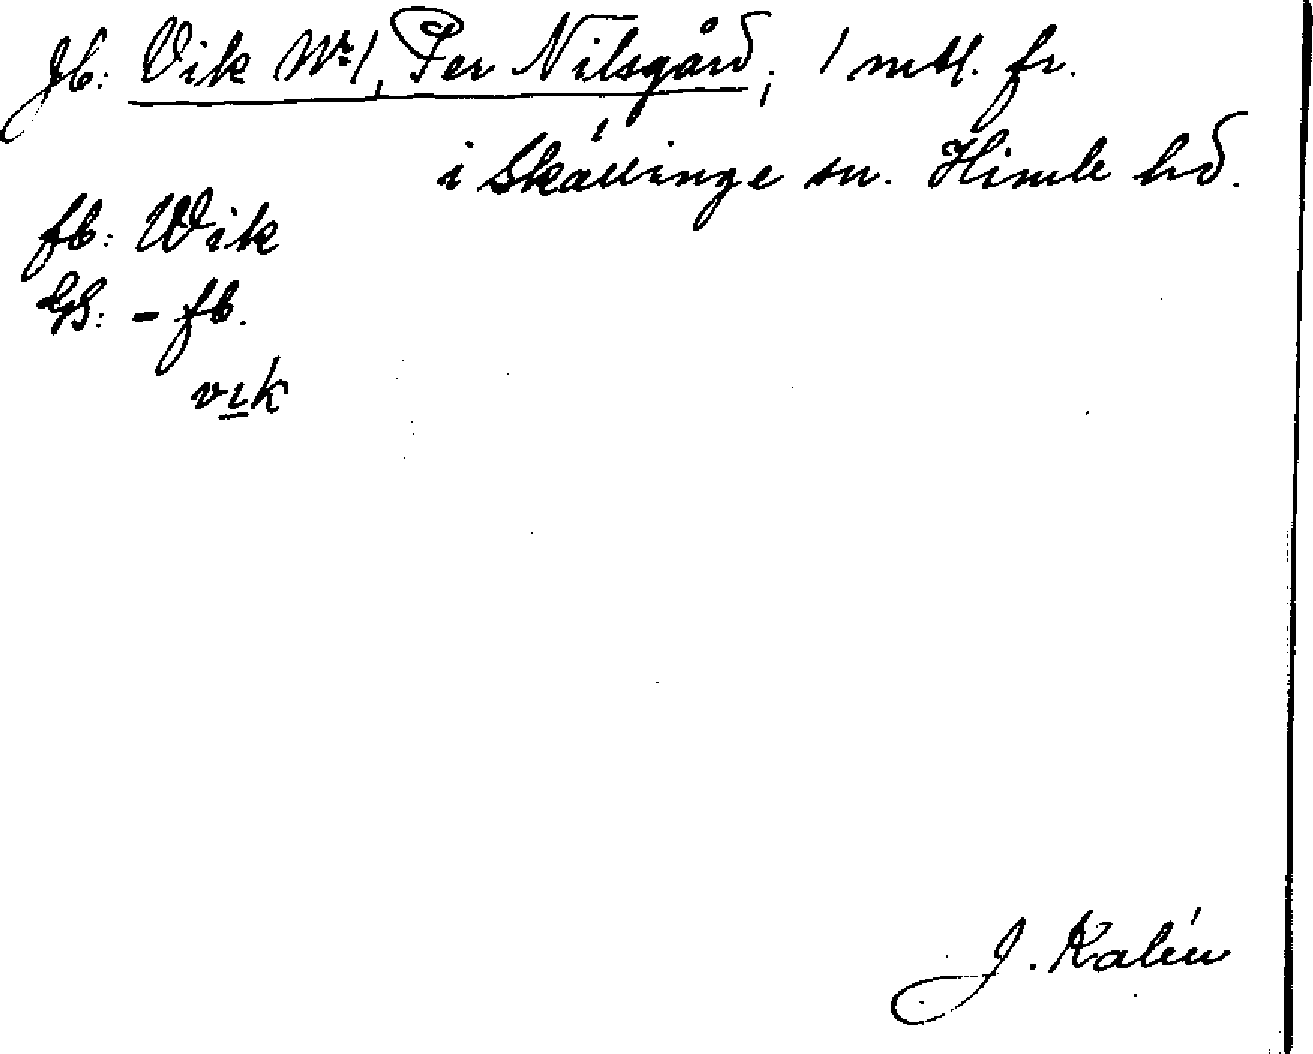 Jb: Vik Nr 1, Per Nilsgård; 1 mtl. fr.
i Skällinge sn. Himle hd.
fb: Wik
GS: - fb.
vik
J. Kalén